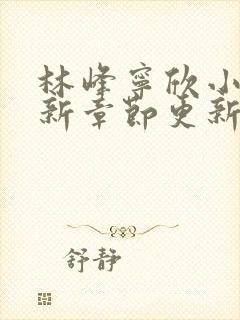 林峰寧欣小
新章節更新
舒静